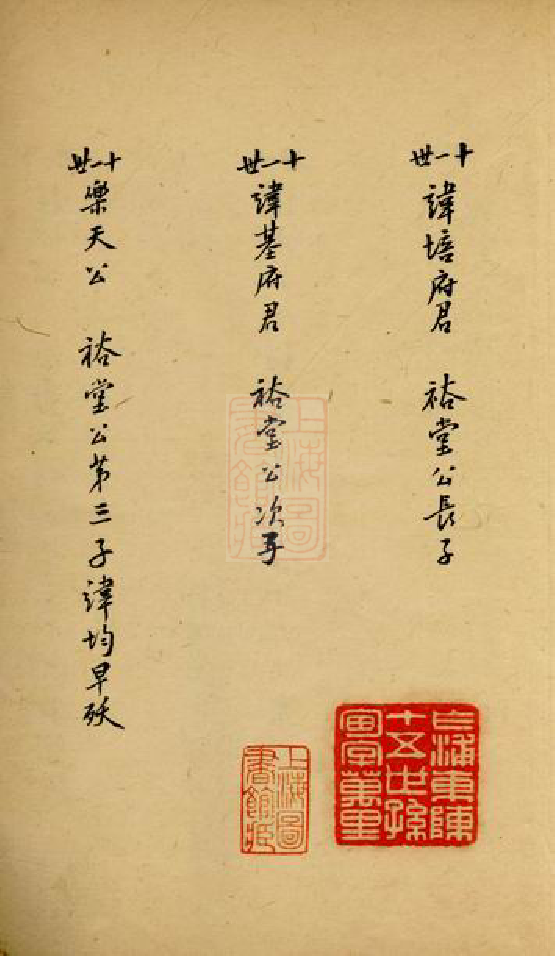 十一世
諱培府君 裕堂公長子
十一世
諱基府君 裕堂公次子
十一世
樂天公 裕堂公第三子諱均早殀
上海圖
書館藏
浦東陳
十五世孫
字萬里
上海圖
書館藏